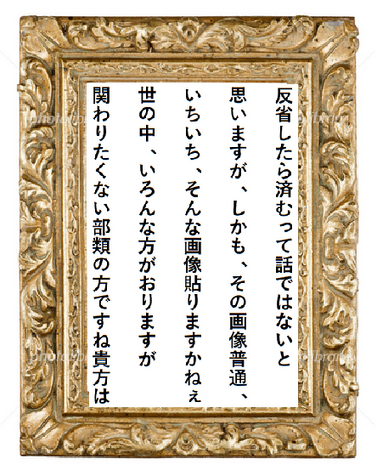 反省したら済むって話ではないと
思いますが、しかも、その画像普通、
いちいち、そんな画像貼りますかねぇ
世の中、いろんな方がおりますが
関わりたくない部類の方ですね貴方は